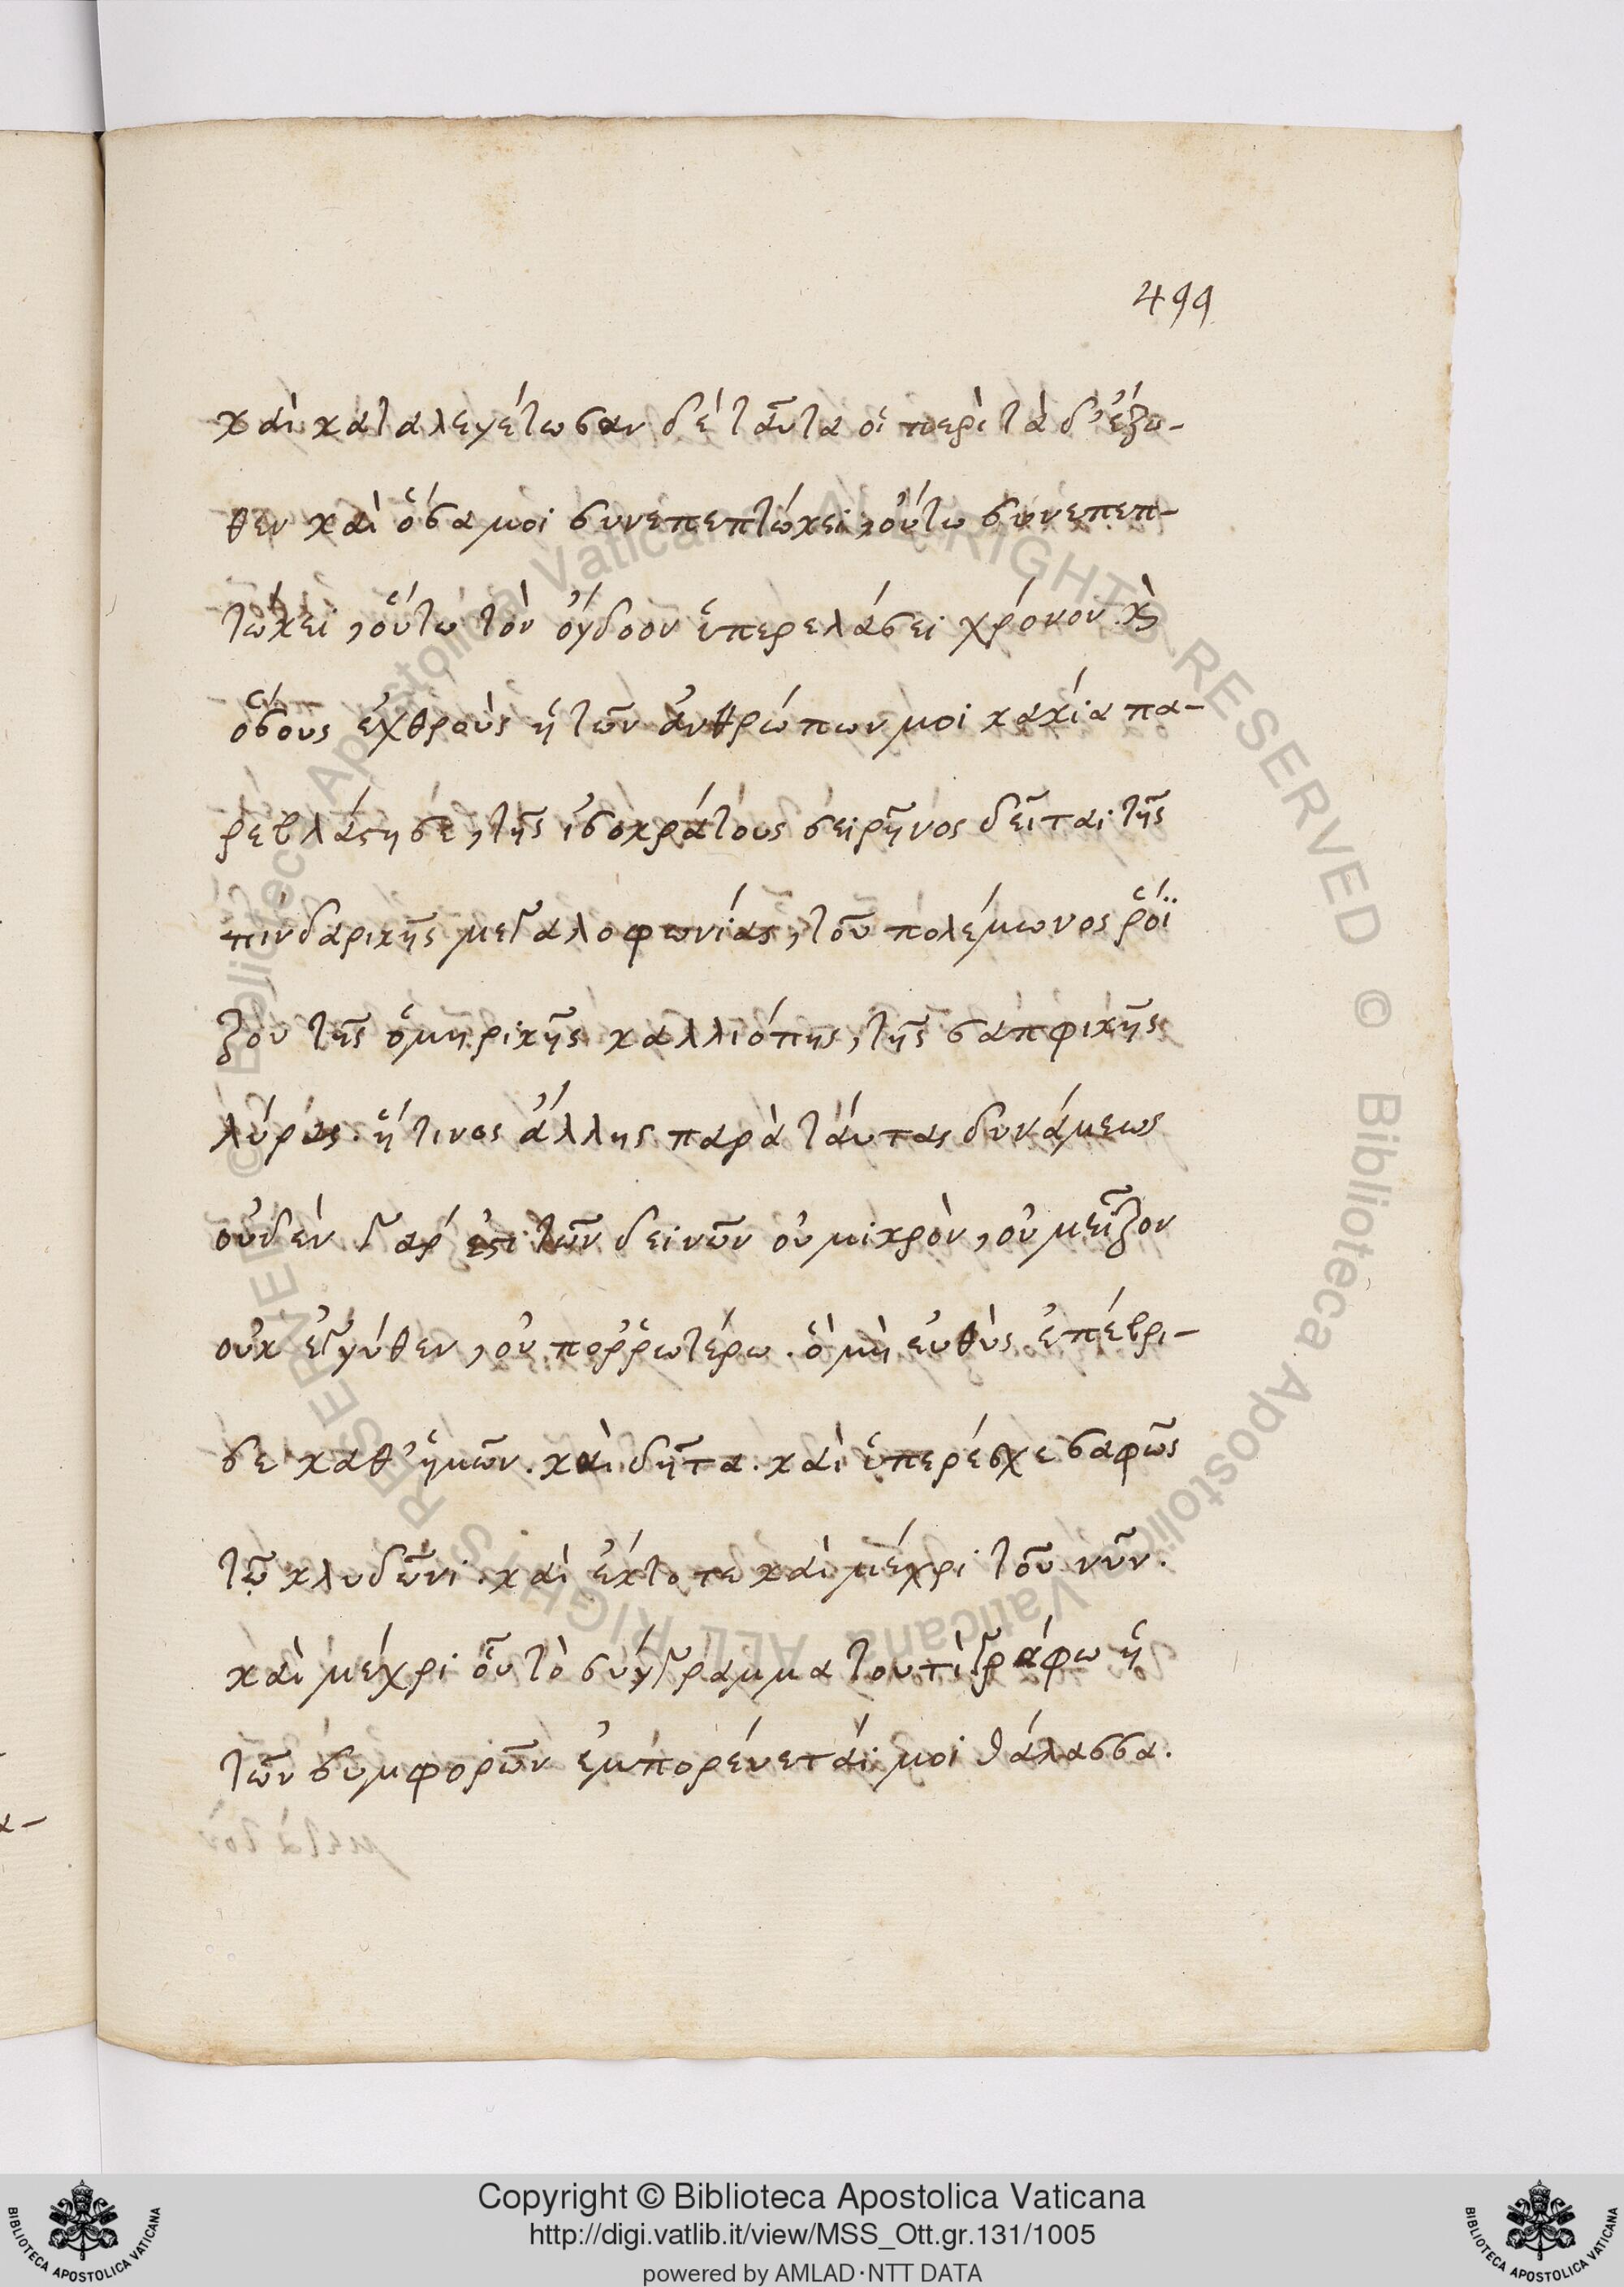 499
καὶ καταλεγέτωσαν δὲ ταῦτα οἱ περὶ τὰ δ' ἔξω-
θεν καὶ ὅσα μοι συνεπεπτώκει, οὕτω συνεπεπ-
τώκει, οὕτω τὸν ὄγδοον ὑπερελάσει χρόνον. κ̀
ὅσους ἐχθροὺς ἡ τῶν ἀνθρώπων μοι κακία πα-
ρεβλάστησε, τῆς ἰσοκράτους σειρῆνος δεῖται τῆς
πινδαρικῆς μεγαλοφωνίας, τοῦ πολέμωνος ῥοΐ
ζου τῆς ὁμηρικῆς καλλιόπης, τῆς σαπφικῆς
λύρας. ἤ τινος ἄλλης παρὰ ταύτας δυνάμεως
οὐδὲν γὰρ ἐστὶ τῶν δεινῶν οὐ μικρὸν, οὐ μεῖζον
οὐκ ἐγγύθεν, οὐ πορρωτέρω. ὃ μὴ εὐθὺς ἐπέβρι-
σε καθ' ἡμῶν. καὶ δῆτα. καὶ ὑπερέσχε σαφῶς
τῷ κλυδῶνι. καὶ ἔκτοτε καὶ μέχρι τοῦ νῦν.
καὶ μέχρι οὗ τὸ σύγγραμμα τουτὶ γράφω ἡ
τῶν συμφορῶν ἐμπορεύεταί μοι θάλασσα.
© Biblioteca Apostolica Vaticana ALL RIGHTS RESERVED © Biblioteca Apostolica Vaticana ALL RIGHTS RESERVED
Copyright © Biblioteca Apostolica Vaticana
http://digi.vatlib.it/view/MSS_Ott.gr.131/1005
powered by AMLAD·NTT DATA
BIBLIOTECA APOSTOLICA VATICANA
BIBLIOTECA APOSTOLICA VATICANA